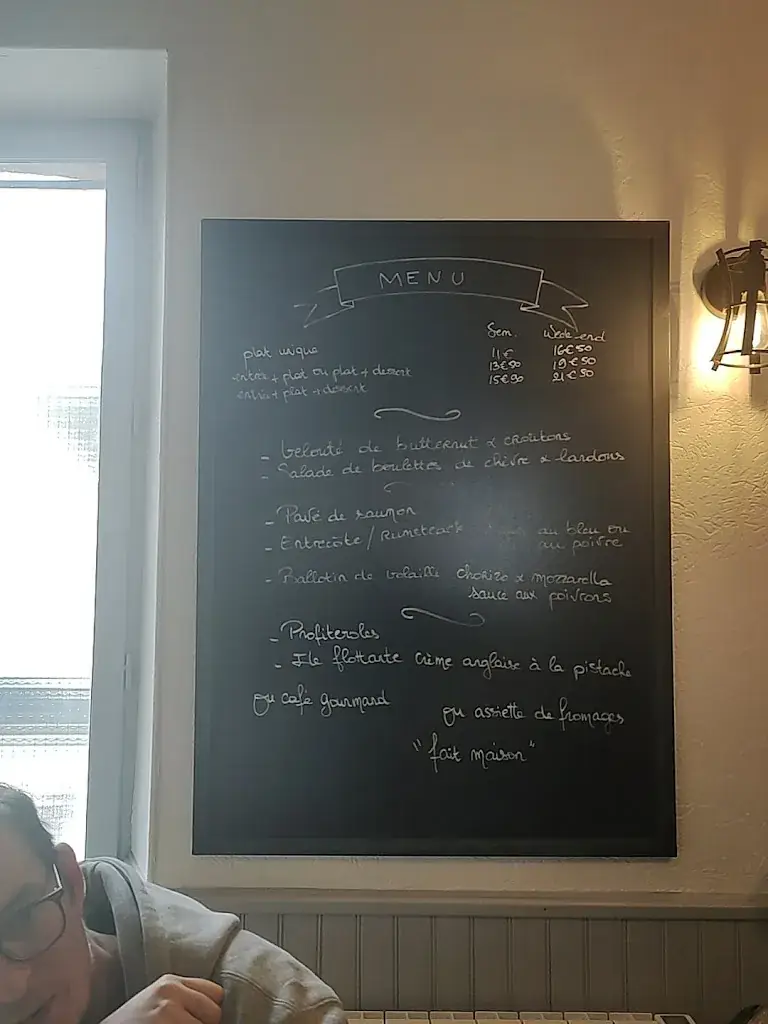 MENU
Sem. Week-end
plat unique 11€ 16€50
entrée + plat ou plat + dessert 13€50 19€50
entrée + plat + dessert 15€90 21€50
- Velouté de butternut & croûtons
- Salade de boulettes de chèvre & lardons
- Pavé de saumon
- Entrecôte / Rumsteack au bleu ou
au poivre
- Ballotin de volaille chorizo & mozzarella
sauce aux poivrons
- Profiteroles
- Ile flottante crème anglaise à la pistache
ou café gourmand
ou assiette de fromages
"fait maison"